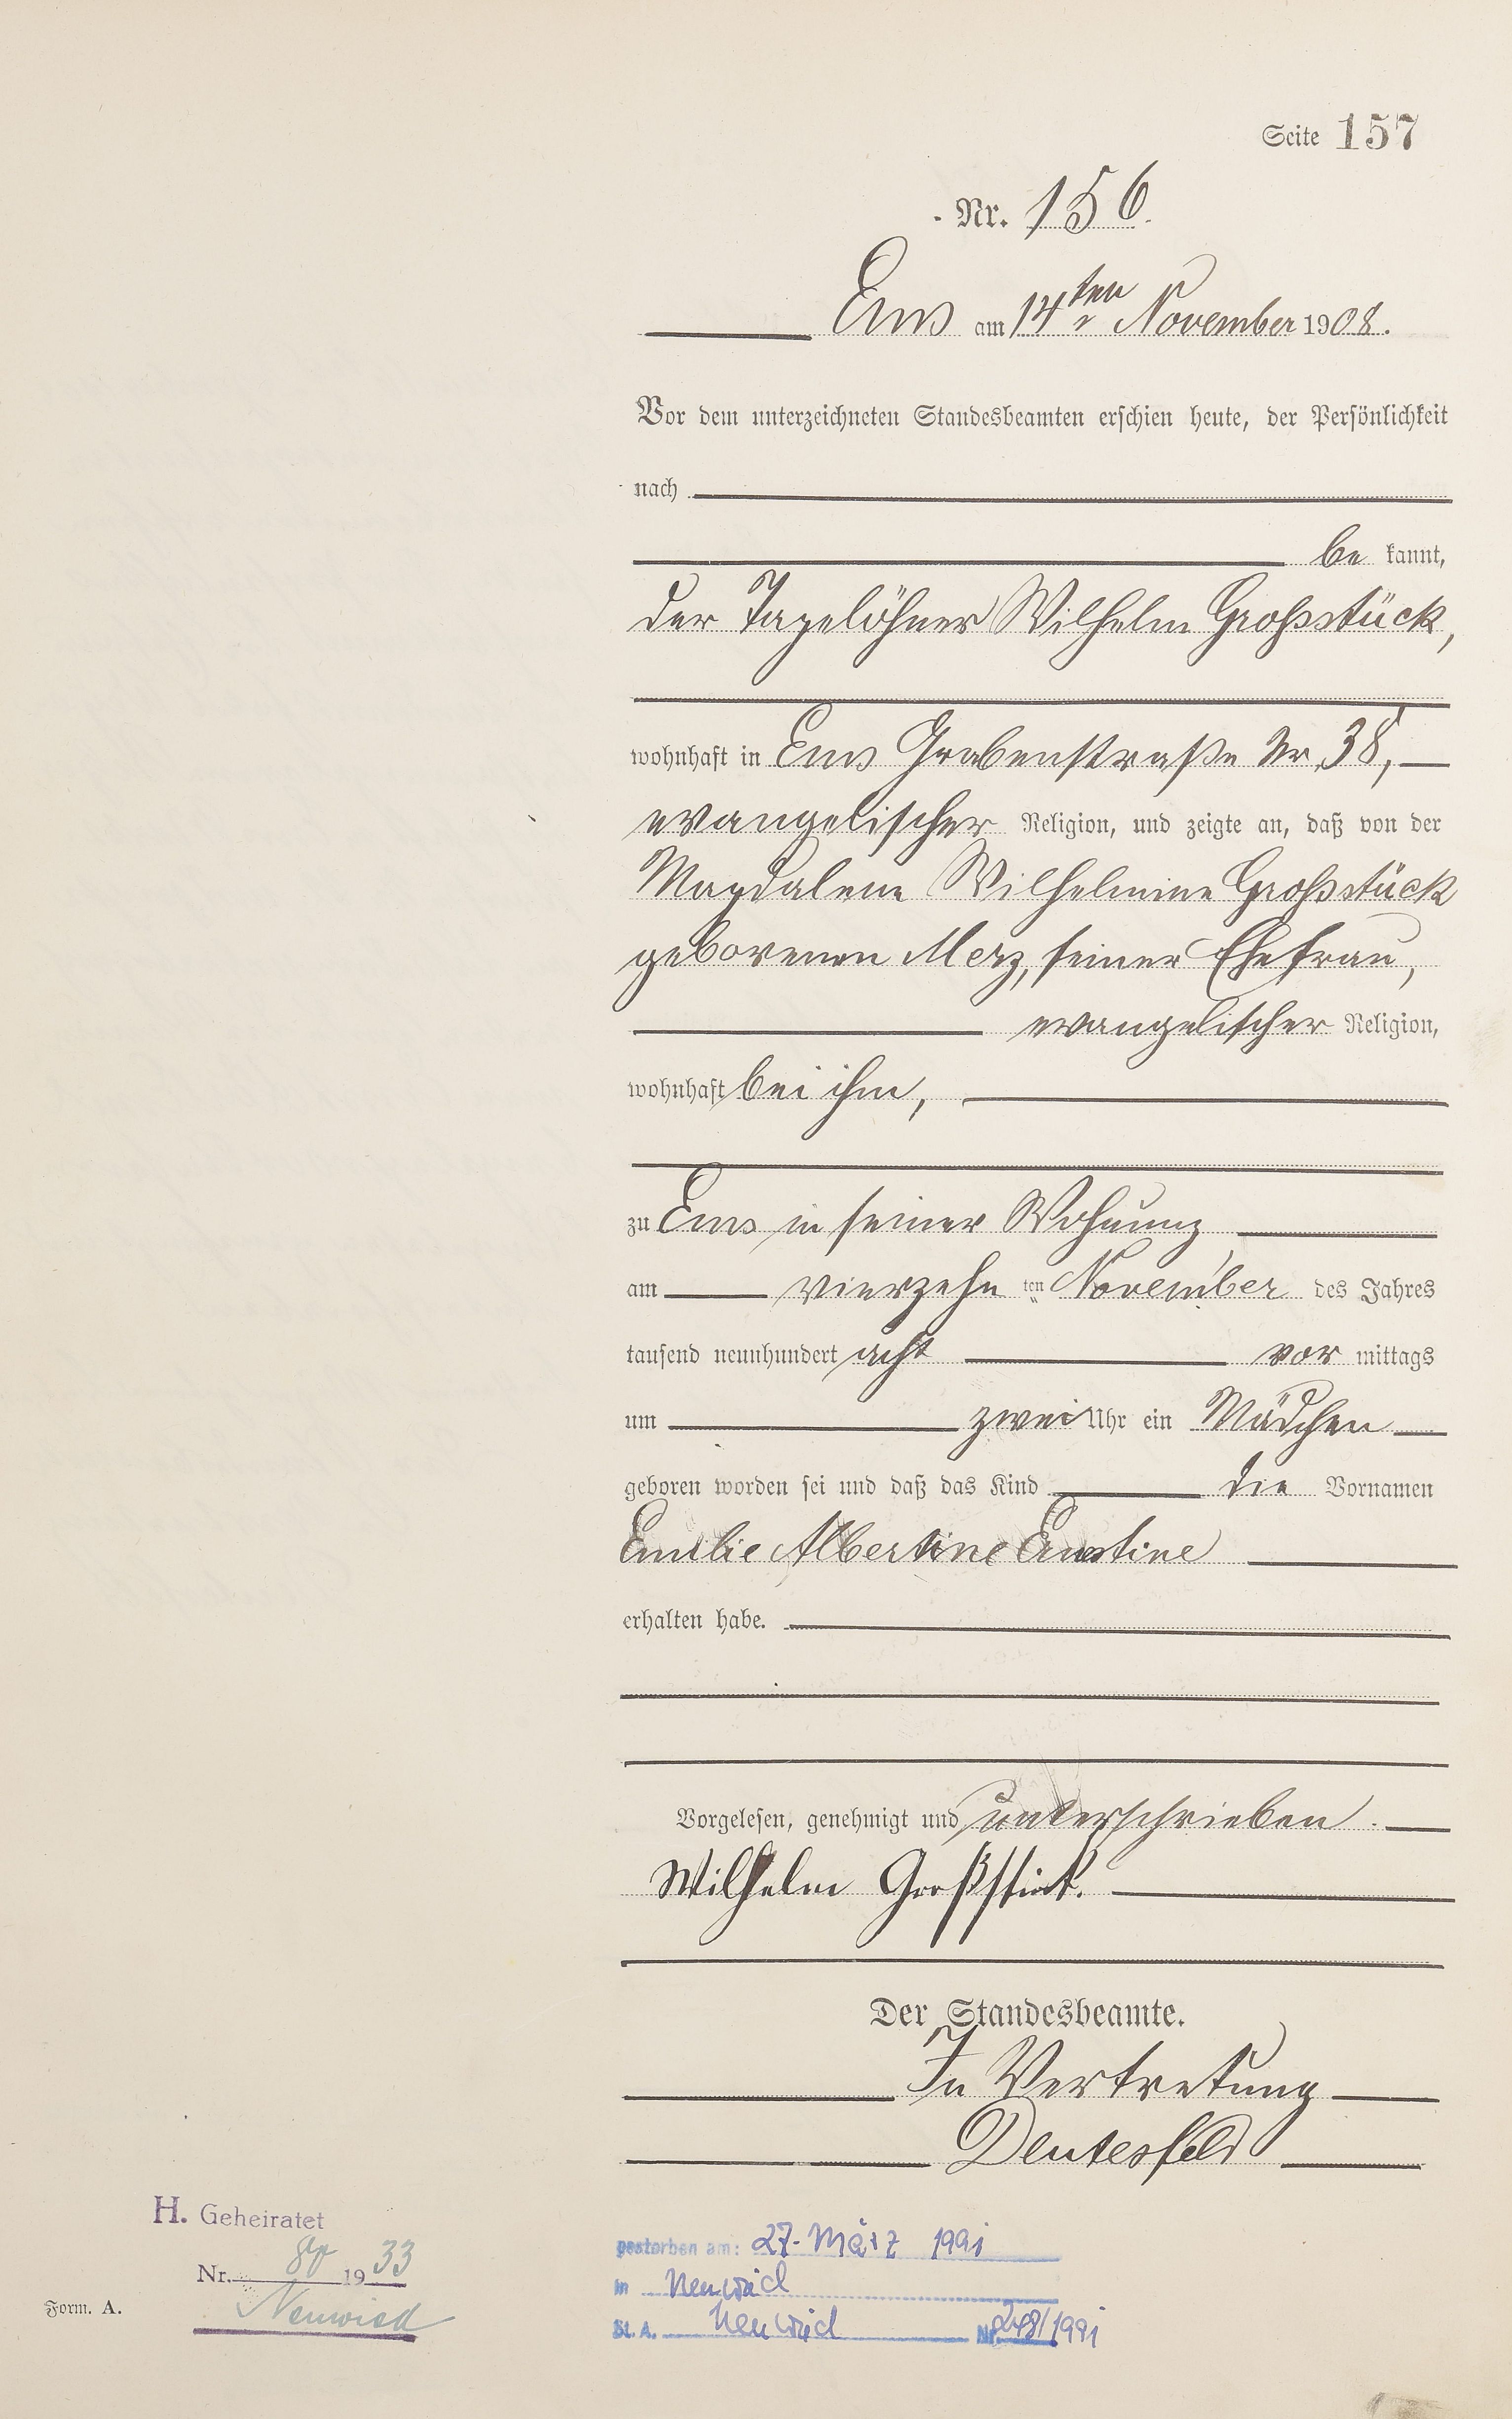 Seite 157
Nr. 156.
Ems am 14ten November 1908.
Vor dem unterzeichneten Standesbeamten erschien heute, der Persönlichkeit
nach
be kannt,
der Tagelöhner Wilhelm Großstück,
wohnhaft in Ems Grabenstraße Nr. 38,
evangelischer Religion, und zeigte an, daß von der
Magdalene Wilhelmine Großstück
geborenen Merz, seiner Ehefrau,
evangelischer Religion,
wohnhaft bei ihm,
zu Ems in seiner Wohnung
am vierzehn ten November des Jahres
tausend neunhundert acht vor mittags
um zwei Uhr ein Mädchen
geboren worden sei und daß das Kind die Vornamen
Emilie Albertine Ernestine
erhalten habe.
Vorgelesen, genehmigt und unterschrieben.
Wilhelm Großstück.
Der Standesbeamte.
In Vertretung
Deutesfeld
H. Geheiratet
Nr. 1933
Neuwied
Form. A.
gestorben am: 27. März 1991
in Neuwied
St. A. Neuwied Nr. 248/1991